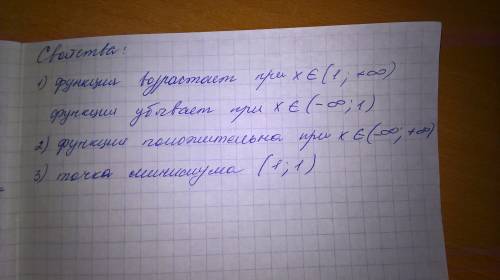 Свойства:
1) функция возрастает при x ∈ (1; +∞)
функция убывает при x ∈ (-∞; 1)
2) функция положительна при x ∈ (-∞; +∞)
3) точка минимума (1; 1)